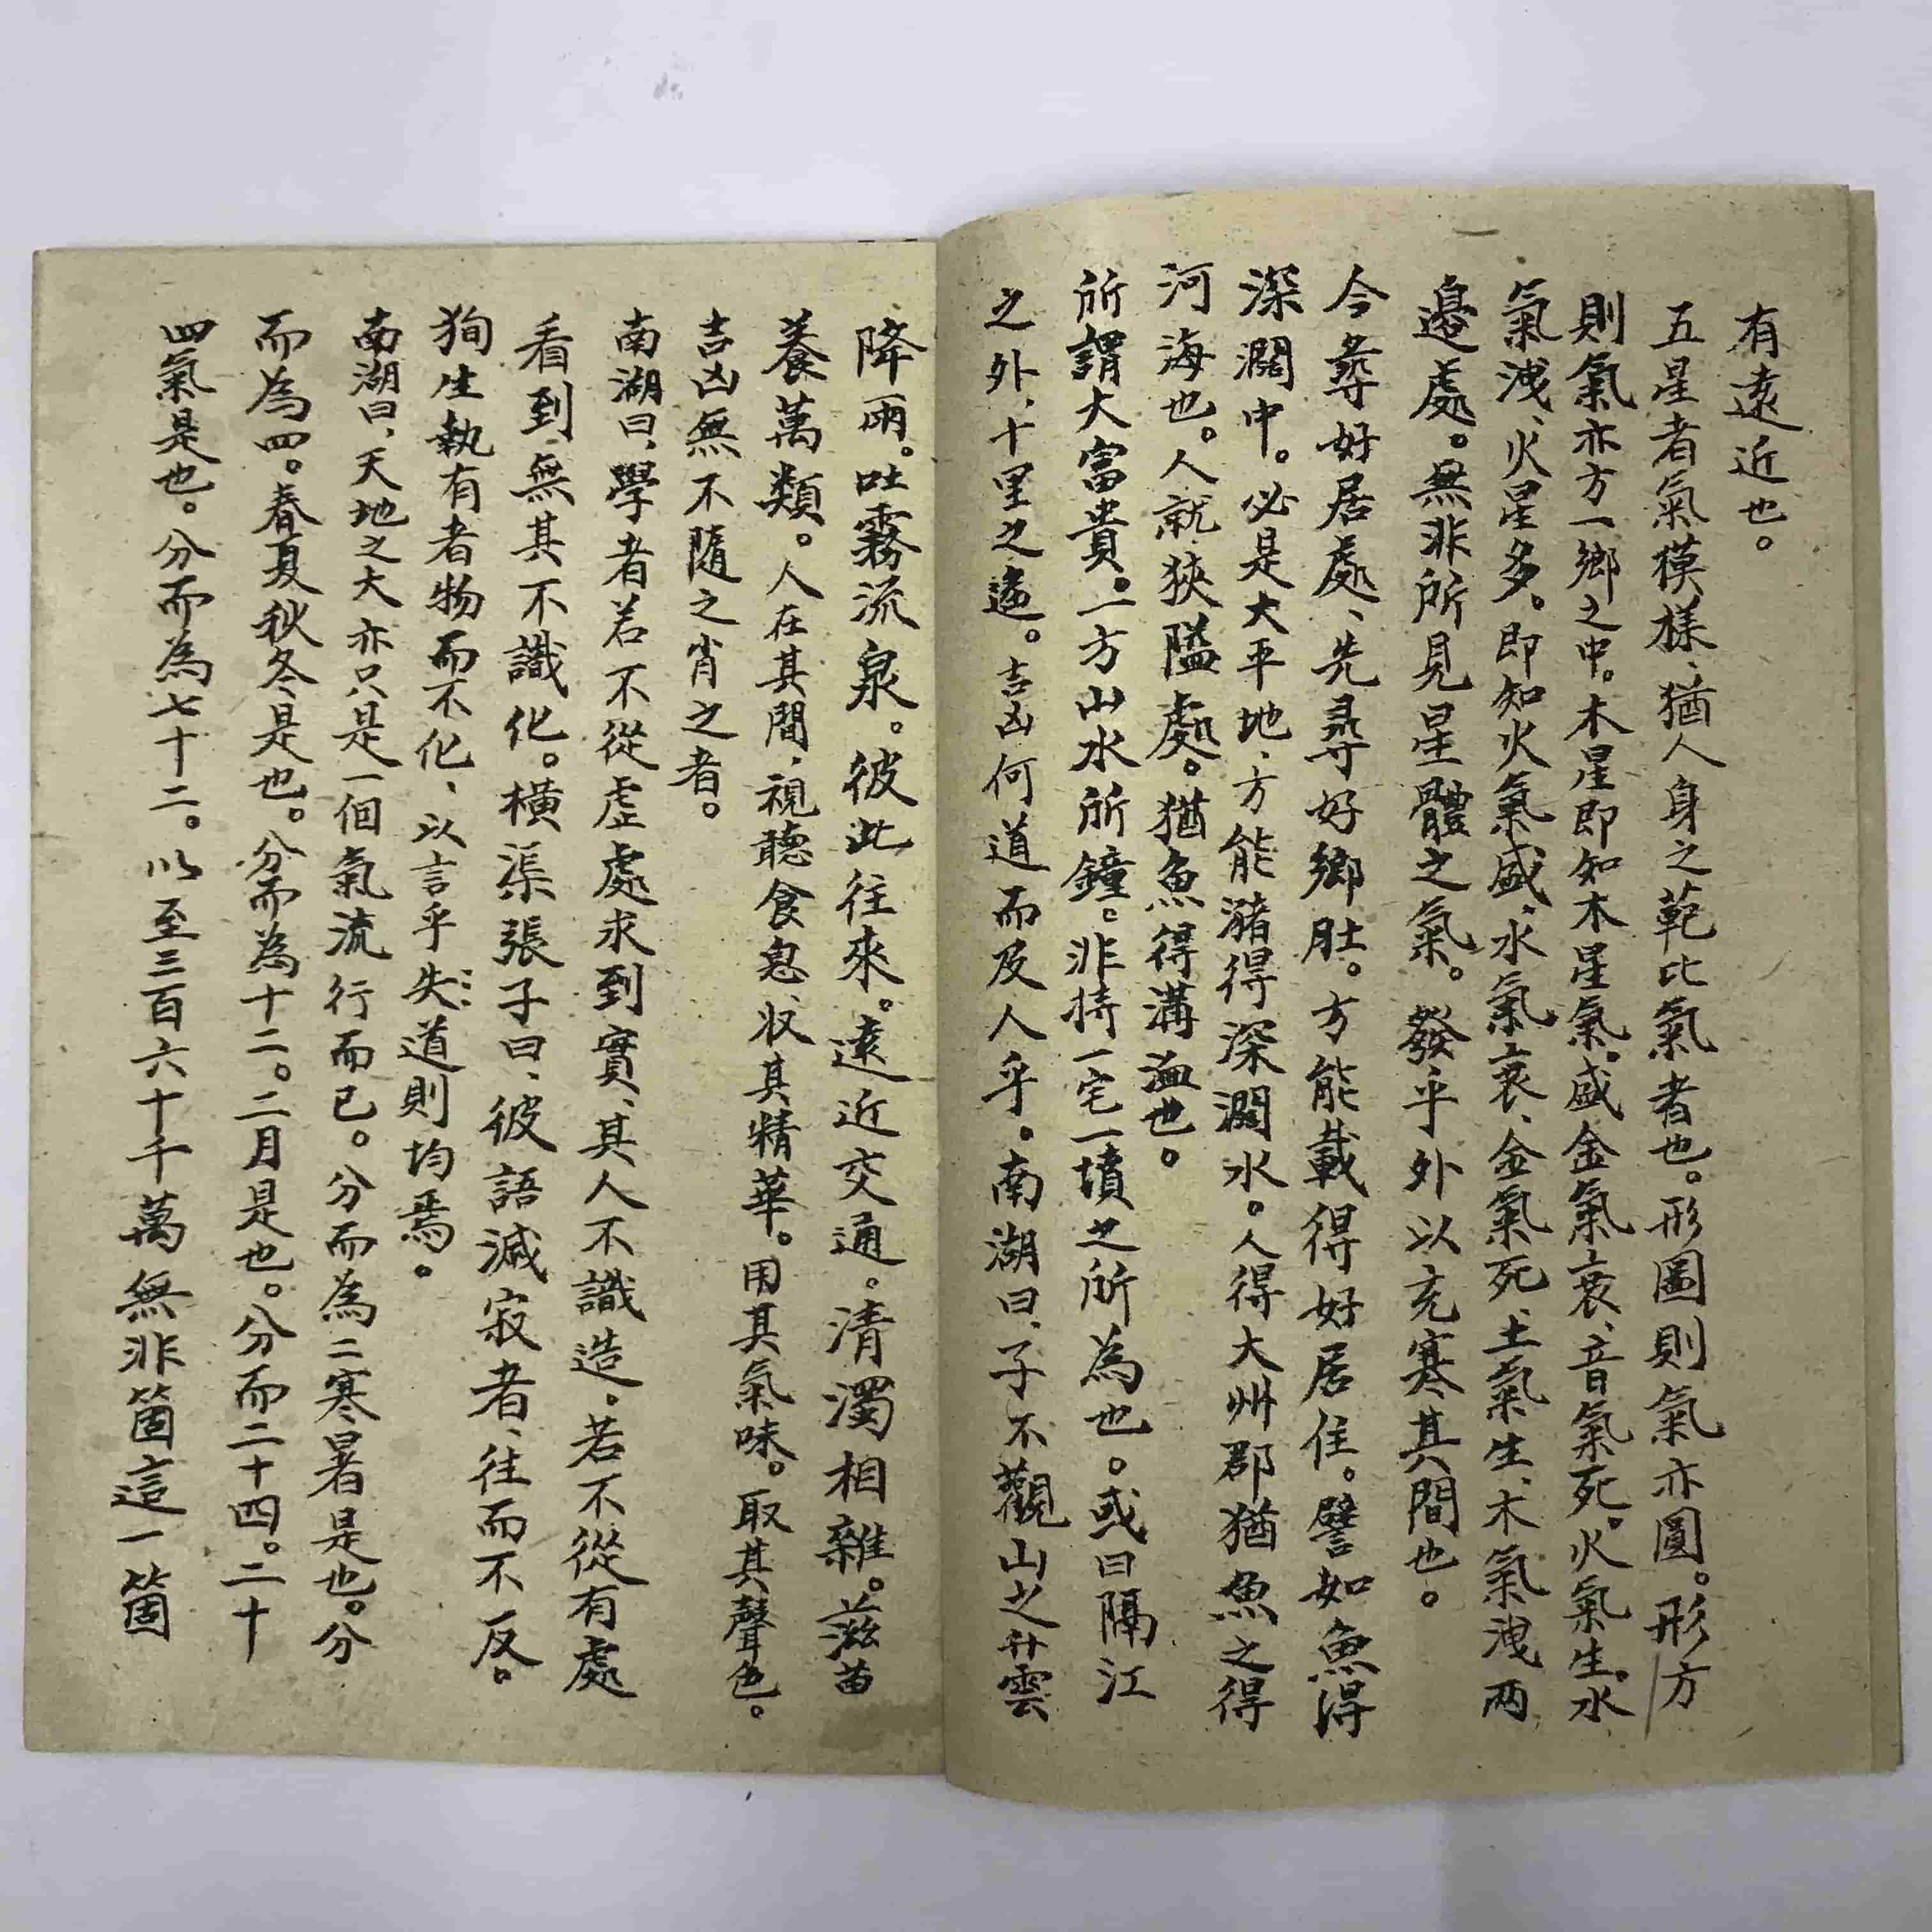 有遠近也。
五星者氣模樣、猶人身之範比氣者也。形圖則氣亦圓。形方
則氣亦方一鄉之中。木星即知木星氣。盛金氣衰、音氣死。火氣生。水
氣洩、火星多。即知火氣盛、水氣衰、金氣死、土氣生、木氣洩两
邉處。無非所見星體之氣。發乎外以充寒其間也。
今尋好居處、先尋好鄉肚。方能載得好居住。譬如魚得
深濶中。必是大平地、方能瀦得深濶水。人得大州郡猶魚之得
河海也。人就狹隘處。猶魚得溝洫也。
所謂大富貴。一方山水所鐘。非持一宅一墳之所為也。或曰隔江
之外、十里之遠。吉凶何道而及人乎。南湖曰、子不觀山之升雲
降雨。吐霧流泉。彼此往來。遠近交通。清濁相雜。滋苗
養萬類。人在其間、視聽食息、収其精華。用其氣味。取其聲色。
吉凶無不隨之肖之者。
南湖曰、學者若不從虛處求到實、其人不識造。若不從有處
看到無其不識化。橫渠張子曰、彼語滅寂者、往而不反。
狥生執有者物而不化、以言乎失道則均焉。
南湖曰、天地之大亦只是一個氣流行而已。分而為二寒暑是也。分
而為四。春夏秋冬是也。分而為十二。二月是也。分而二十四。二十
四氣是也。分而為七十二。以至三百六十千萬無非箇這一箇